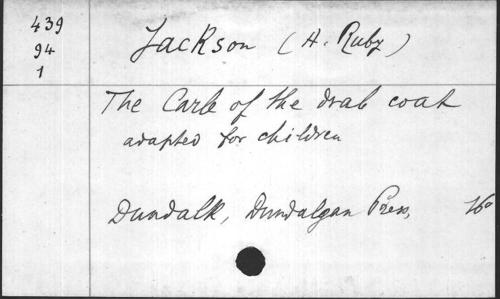 439
94
1
Jackson (A. Ruby)
The Carle of the drab coat
adapted for children
Dundalk, Dundalgan Press, 16º